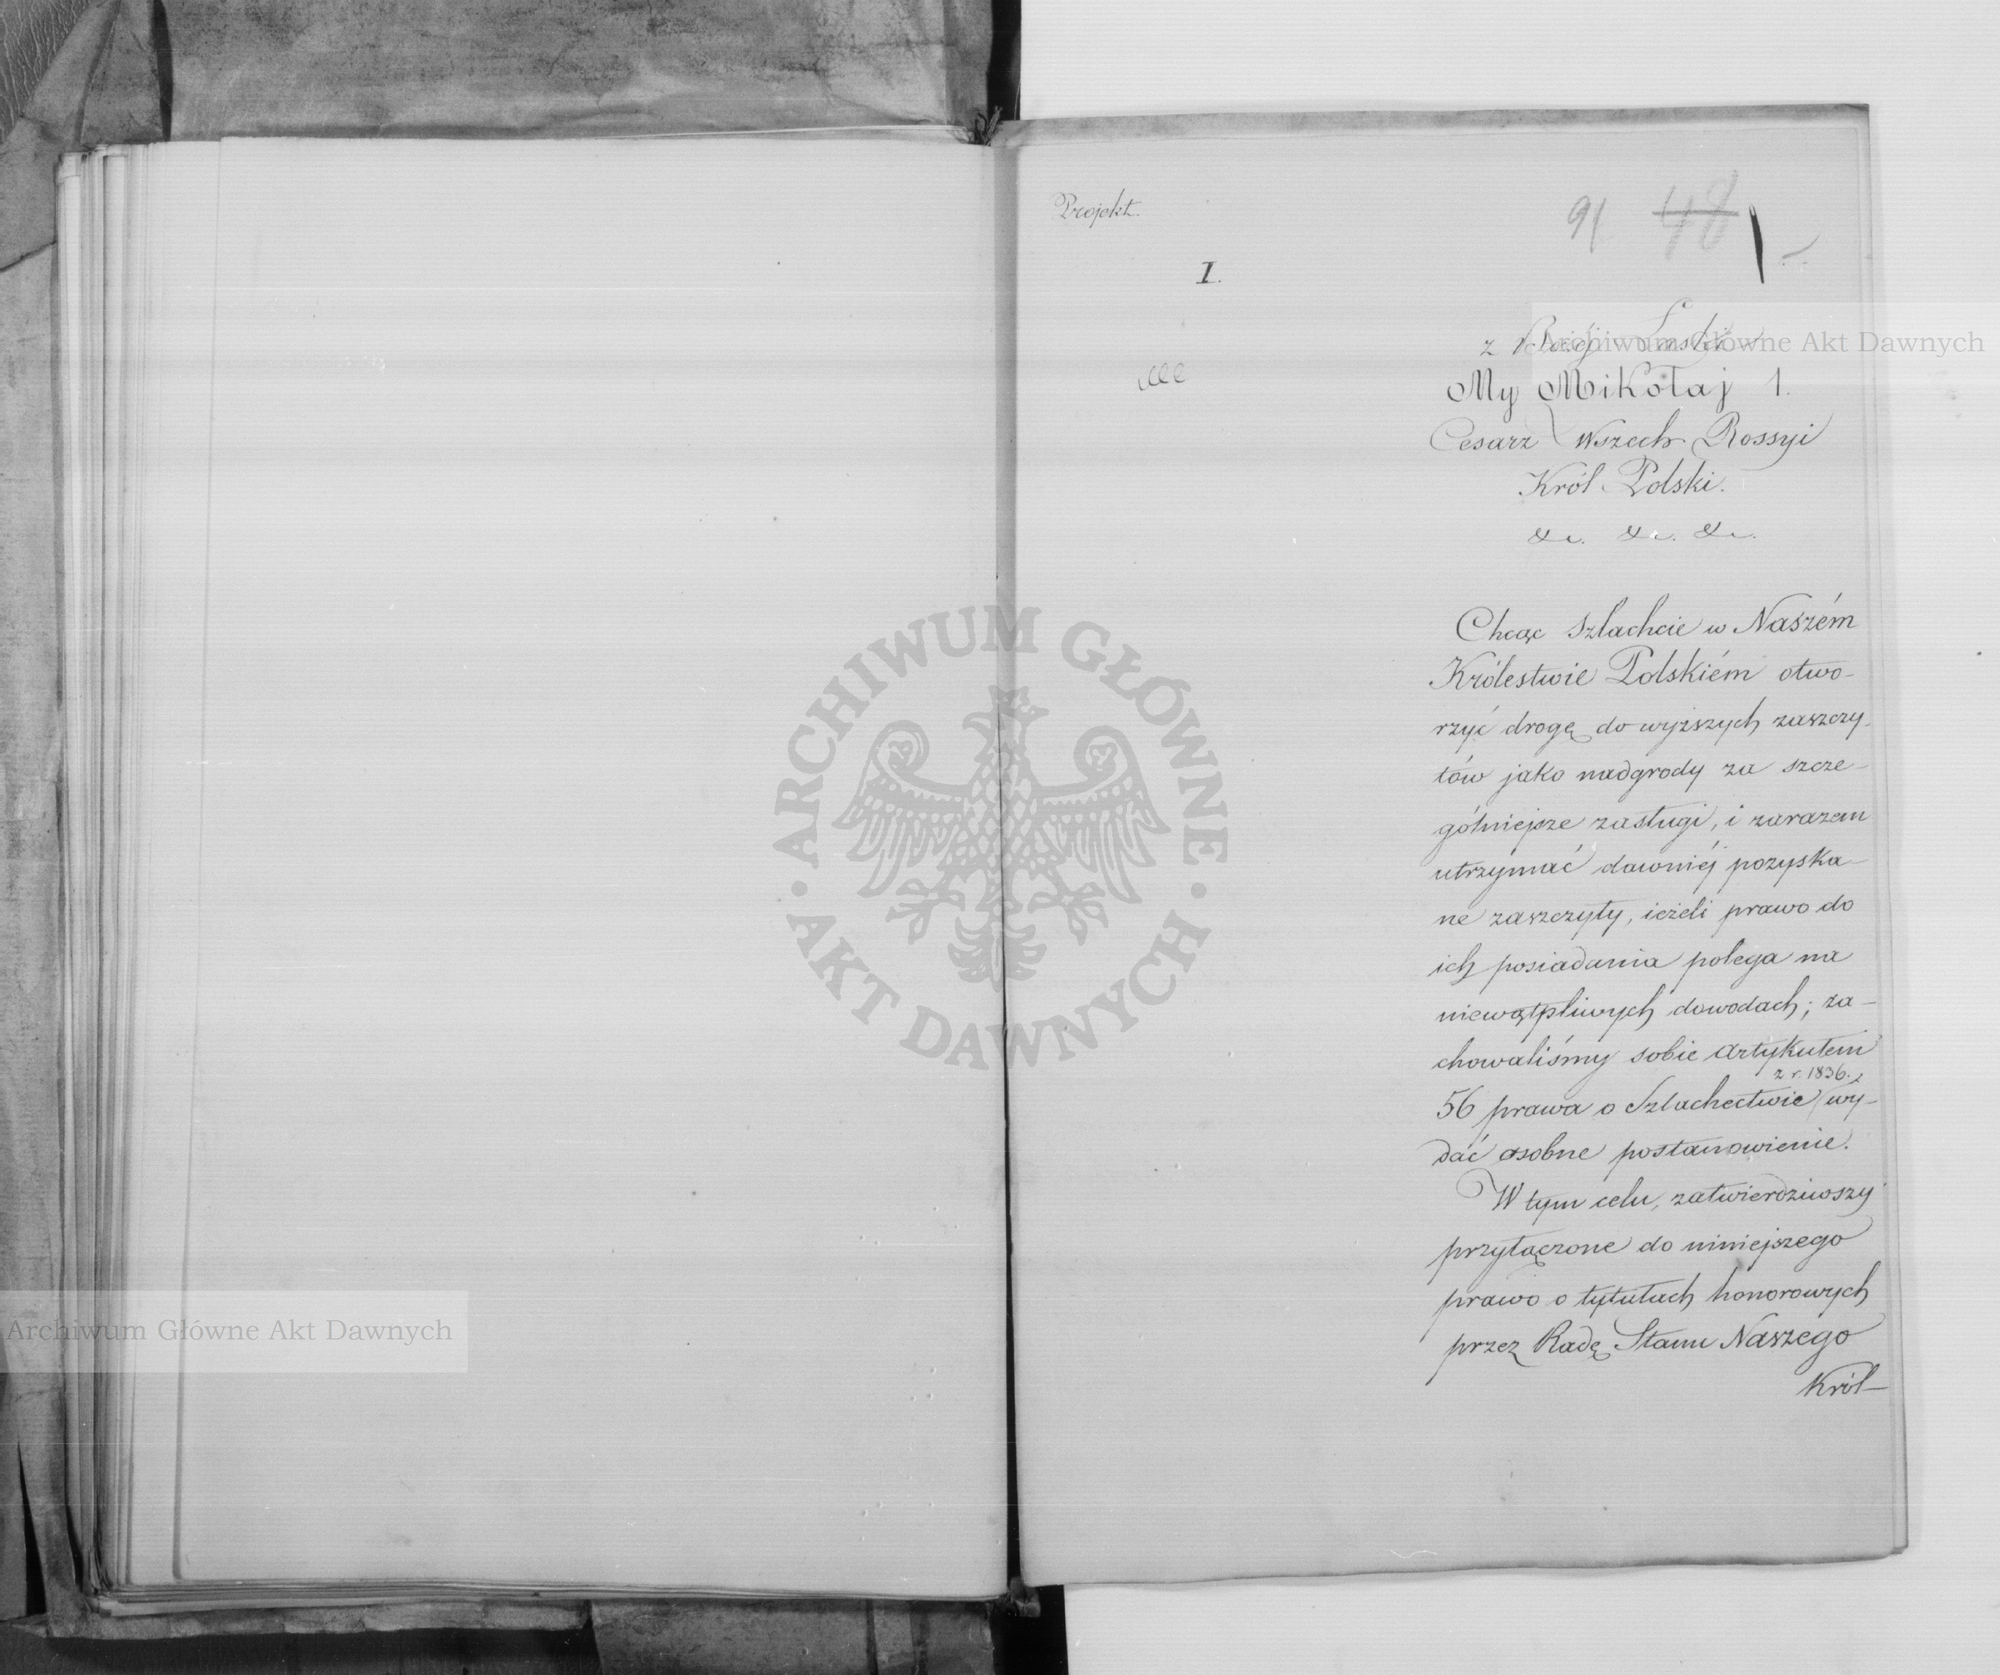 Projekt.
91 48
I.
z Bożéj Łaski
My Mikołaj I.
Cesarz Wszech Rossyi
Król Polski.
&c. &c. &c.
Chcąc szlachcie w Naszém
Królestwie Polskiém otwo-
rzyć drogę do wyższych zaszczy-
tów jako nadgrody za szcze-
gólniejsze zasługi, i zarazem
utrzymać dawniéj pozyska-
ne zaszczyty, ieżeli prawo do
ich posiadania polega na
niewątpliwych dowodach; za-
chowaliśmy sobie artykułem
z r. 1836.
56 prawa o Szlachectwie wy-
dać osobne postanowienie.
W tym celu, zatwierdziwszy
przyłączone do niniejszego
prawo o tytułach honorowych
przez Radę Stanu Naszego
Król-
Archiwum Główne Akt Dawnych
Archiwum Główne Akt Dawnych
ARCHIWUM GŁÓWNE AKT DAWNYCH